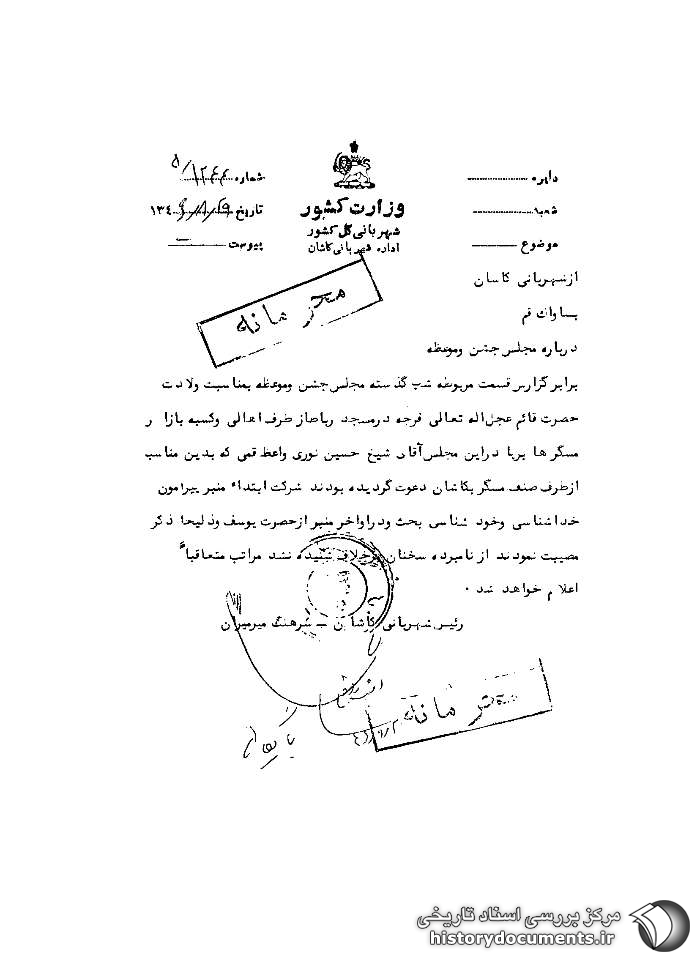 دایره
شعبه
موضوع
وزارت کشور
شهربانی کل کشور
اداره شهربانی کاشان
شماره
تاریخ ۱۳۴
پیوست
محرمانه
از شهربانی کاشان
بساواک قم
درباره مجلس جشن وموعظه
برابر گزارش قسمت مربوطه شب گذشته مجلس جشن وموعظه بمناسبت ولادت
حضرت قائم عجل اله تعالی فرجه درمسجد رباط از طرف اهالی وکسبه بازار
مسگرها برپا دراین مجلس آقای شیخ حسین نوری واعظ قمی که بدین مناسب
ازطرف صنف مسگر بکاشان دعوت گردیده بودند شرکت ابتداء منبر پیرامون
خداشناسی وخود شناسی بحث ودراواخر منبر ازحضرت یوسف وذلیخا ذکر
مصیبت نمودند از نامبرده سخنان برخلاف شنیده نشد مراتب متعاقباً
اعلام خواهد شد ۰
رئیس شهربانی کاشان ــ سرهنگ میرمیران
محرمانه
مرکز بررسی اسناد تاریخی
historydocuments.ir